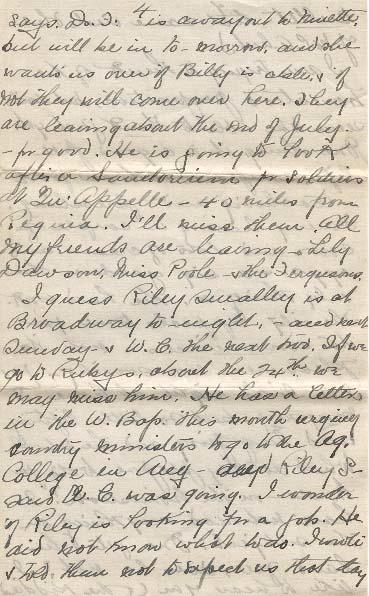 says. Dr. F. is away out to Ninette,
but will be in to-morrow. and she
wants us over if Billy is able, & if
not they will come over here. They
are leaving about the md of July.
- for good. He is going to look
after a Sanitorium for soldiers
at Qu'Appelle - 40 miles from
Regina. I'll miss them. All
my friends are leaving. Lily
Dawson, Miss Poole - & the Fergusons.
I guess Riley Smalley is at
Broadway to-night, and next
Sunday & W. C. the next two. If we
go to Ruby's, about the 24th we
may miss him. He has a letter
in the W. Bap. this month urging
country ministers to go to the Ag.
College in Aug - and Riley S-
said W. C. was going. I wonder
if Riley is looking for a job. He
did not know what was. I wrote
& told them not to expect us that day